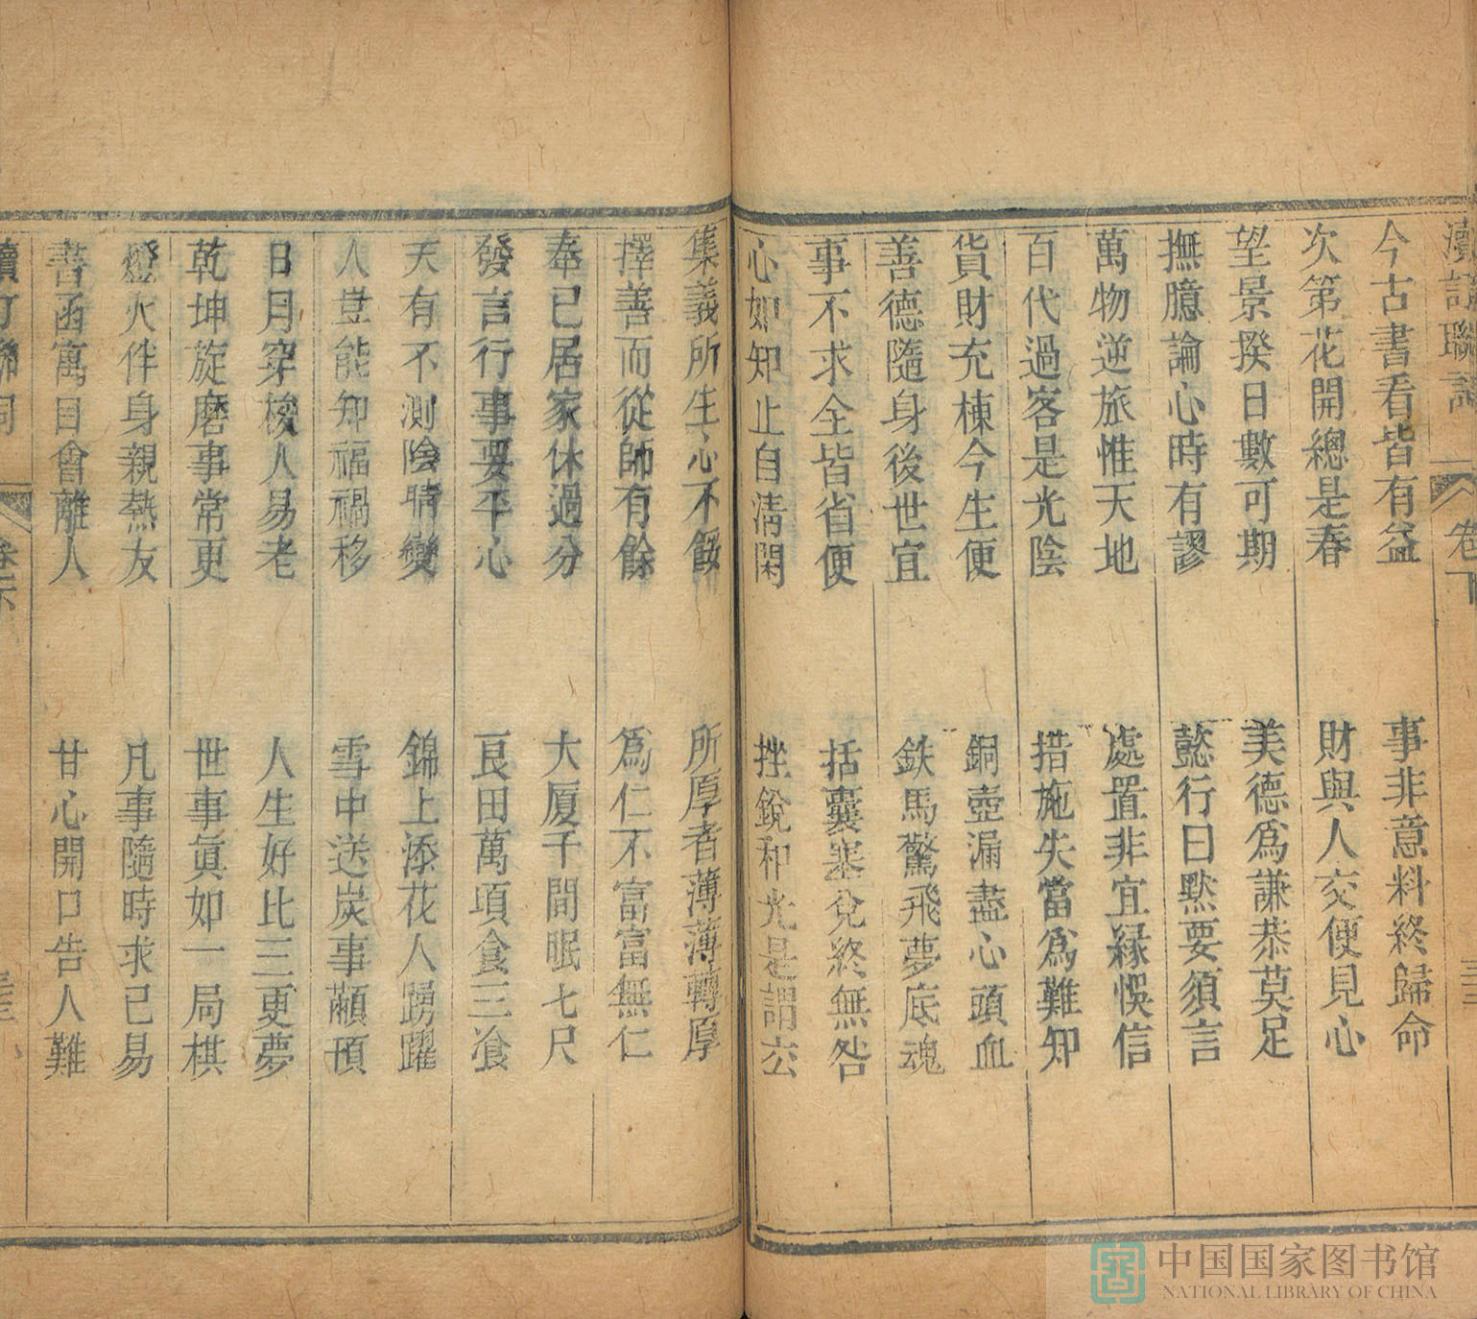 聯
卷下
今古書看皆有益 事非意料終歸命
次第花開總是春 財與人交便見心
望景揆日數可期 美德為謙恭莫足
撫臆論心時有謬 懿行曰默要須言
萬物逆旅惟天地 處置非宜緣悞信
百代過客是光陰 措施失當為難知
貨財充棟今生便 銅壺漏盡心頭血
善德隨身後世宜 鉄馬驚飛夢底魂
事不求全皆省便 括囊塞兌終無咎
心如知止自清閑 挫銳和光是謂玄
集義所生心不餒 所厚者薄薄轉厚
擇善而從師有餘 為仁不富富無仁
奉己居家休過分 大厦千間眠七尺
發言行事要平心 良田萬頃食三飡
天有不測陰晴變 錦上添花人踴躍
人豈能知福禍移 雪中送炭事顢頇
日月穿梭人易老 人生好比三更夢
乾坤旋磨事常更 世事真如一局棋
燈火伴身親熱友 凡事隨時求己易
書函寓目會離人 甘心開口告人難
卷下
中国国家图书馆
NATIONAL LIBRARY OF CHINA